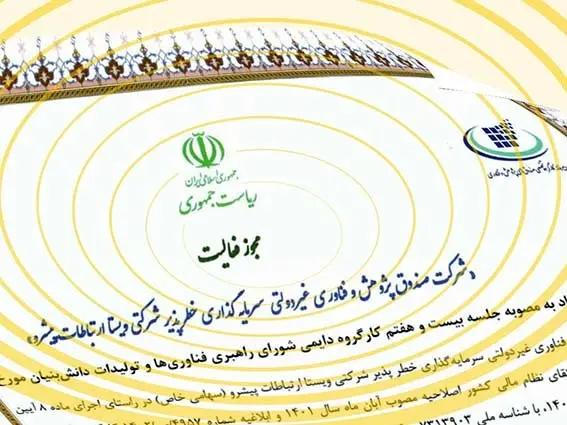 جمهوری اسلامی ایران
ریاست جمهوری
مجوز فعالیت
«شرکت صندوق پژوهش و فناوری غیردولتی سرمایه گذاری خطرپذیر شرکتی ویستا ارتباطات پیشرو»
به مصوبه جلسه بیست و هفتم کارگروه دایمی شورای راهبری فناوری‌ها و تولیدات دانش‌بنیان مورخ
فناوری غیردولتی سرمایه‌گذاری خطر پذیر شرکتی ویستا ارتباطات پیشرو (سهامی خاص) در راستای اجرای ماده ۸ آیین
نظام مالی کشور اصلاحیه مصوب آبان ماه سال ۱۴۰۱ و ابلاغیه شماره
با شناسه ملی